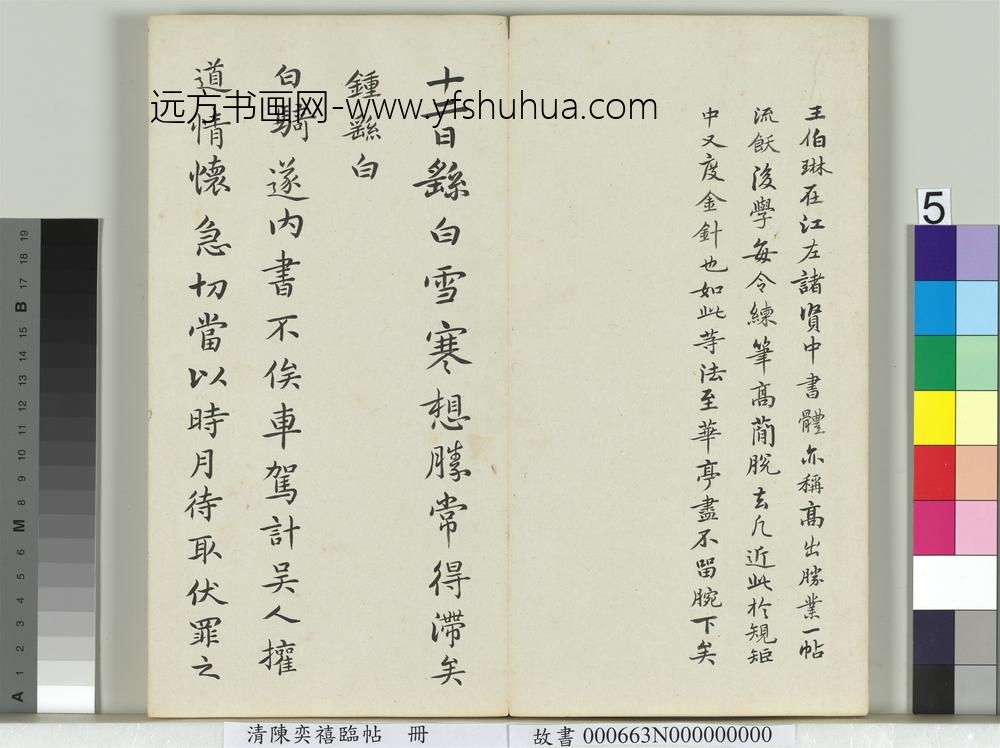 王伯琳在江左諸賢中書體亦稱高出勝業一帖
流飫後學每令練筆高蕑脫去凡近此於規矩
中又度金針也如此等法至華亭盡不留腕下矣
十二日繇白雪寒想勝常得滯矣
鍾繇白
白騎遂內書不俟車駕計吴人擁
道情懷急切當以時月待取伏罪之
远方书画网-www.yfshuhua.com
清陳奕禧臨帖 冊
故書 000663N000000000
5
A 1 2 3 4 5 6 M 8 9 10 11 12 13 14 15 B 17 18 19